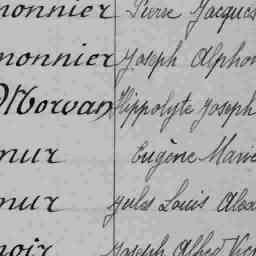 monnier Pierre Jacques
monnier Joseph Alphon
Morvan Hippolyte Joseph
mur Eugène Marie
mur Jules Louis Alex
noir Joseph Alfred Vic